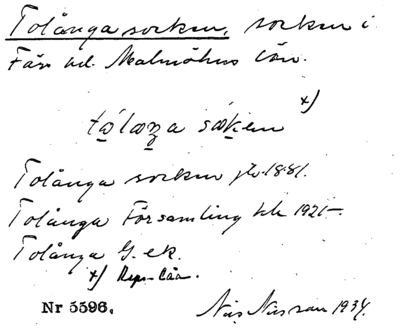 Tolånga socken, socken i
Färs hd. Malmöhus län.
x)
tålaŋa såken
Tolånga socken jb. 1881.
Tolånga Församling kk 1921-.
Tolånga G. ek.
x) Rep. Lda.
Nr 5596.
Nils Nilsson 1934.